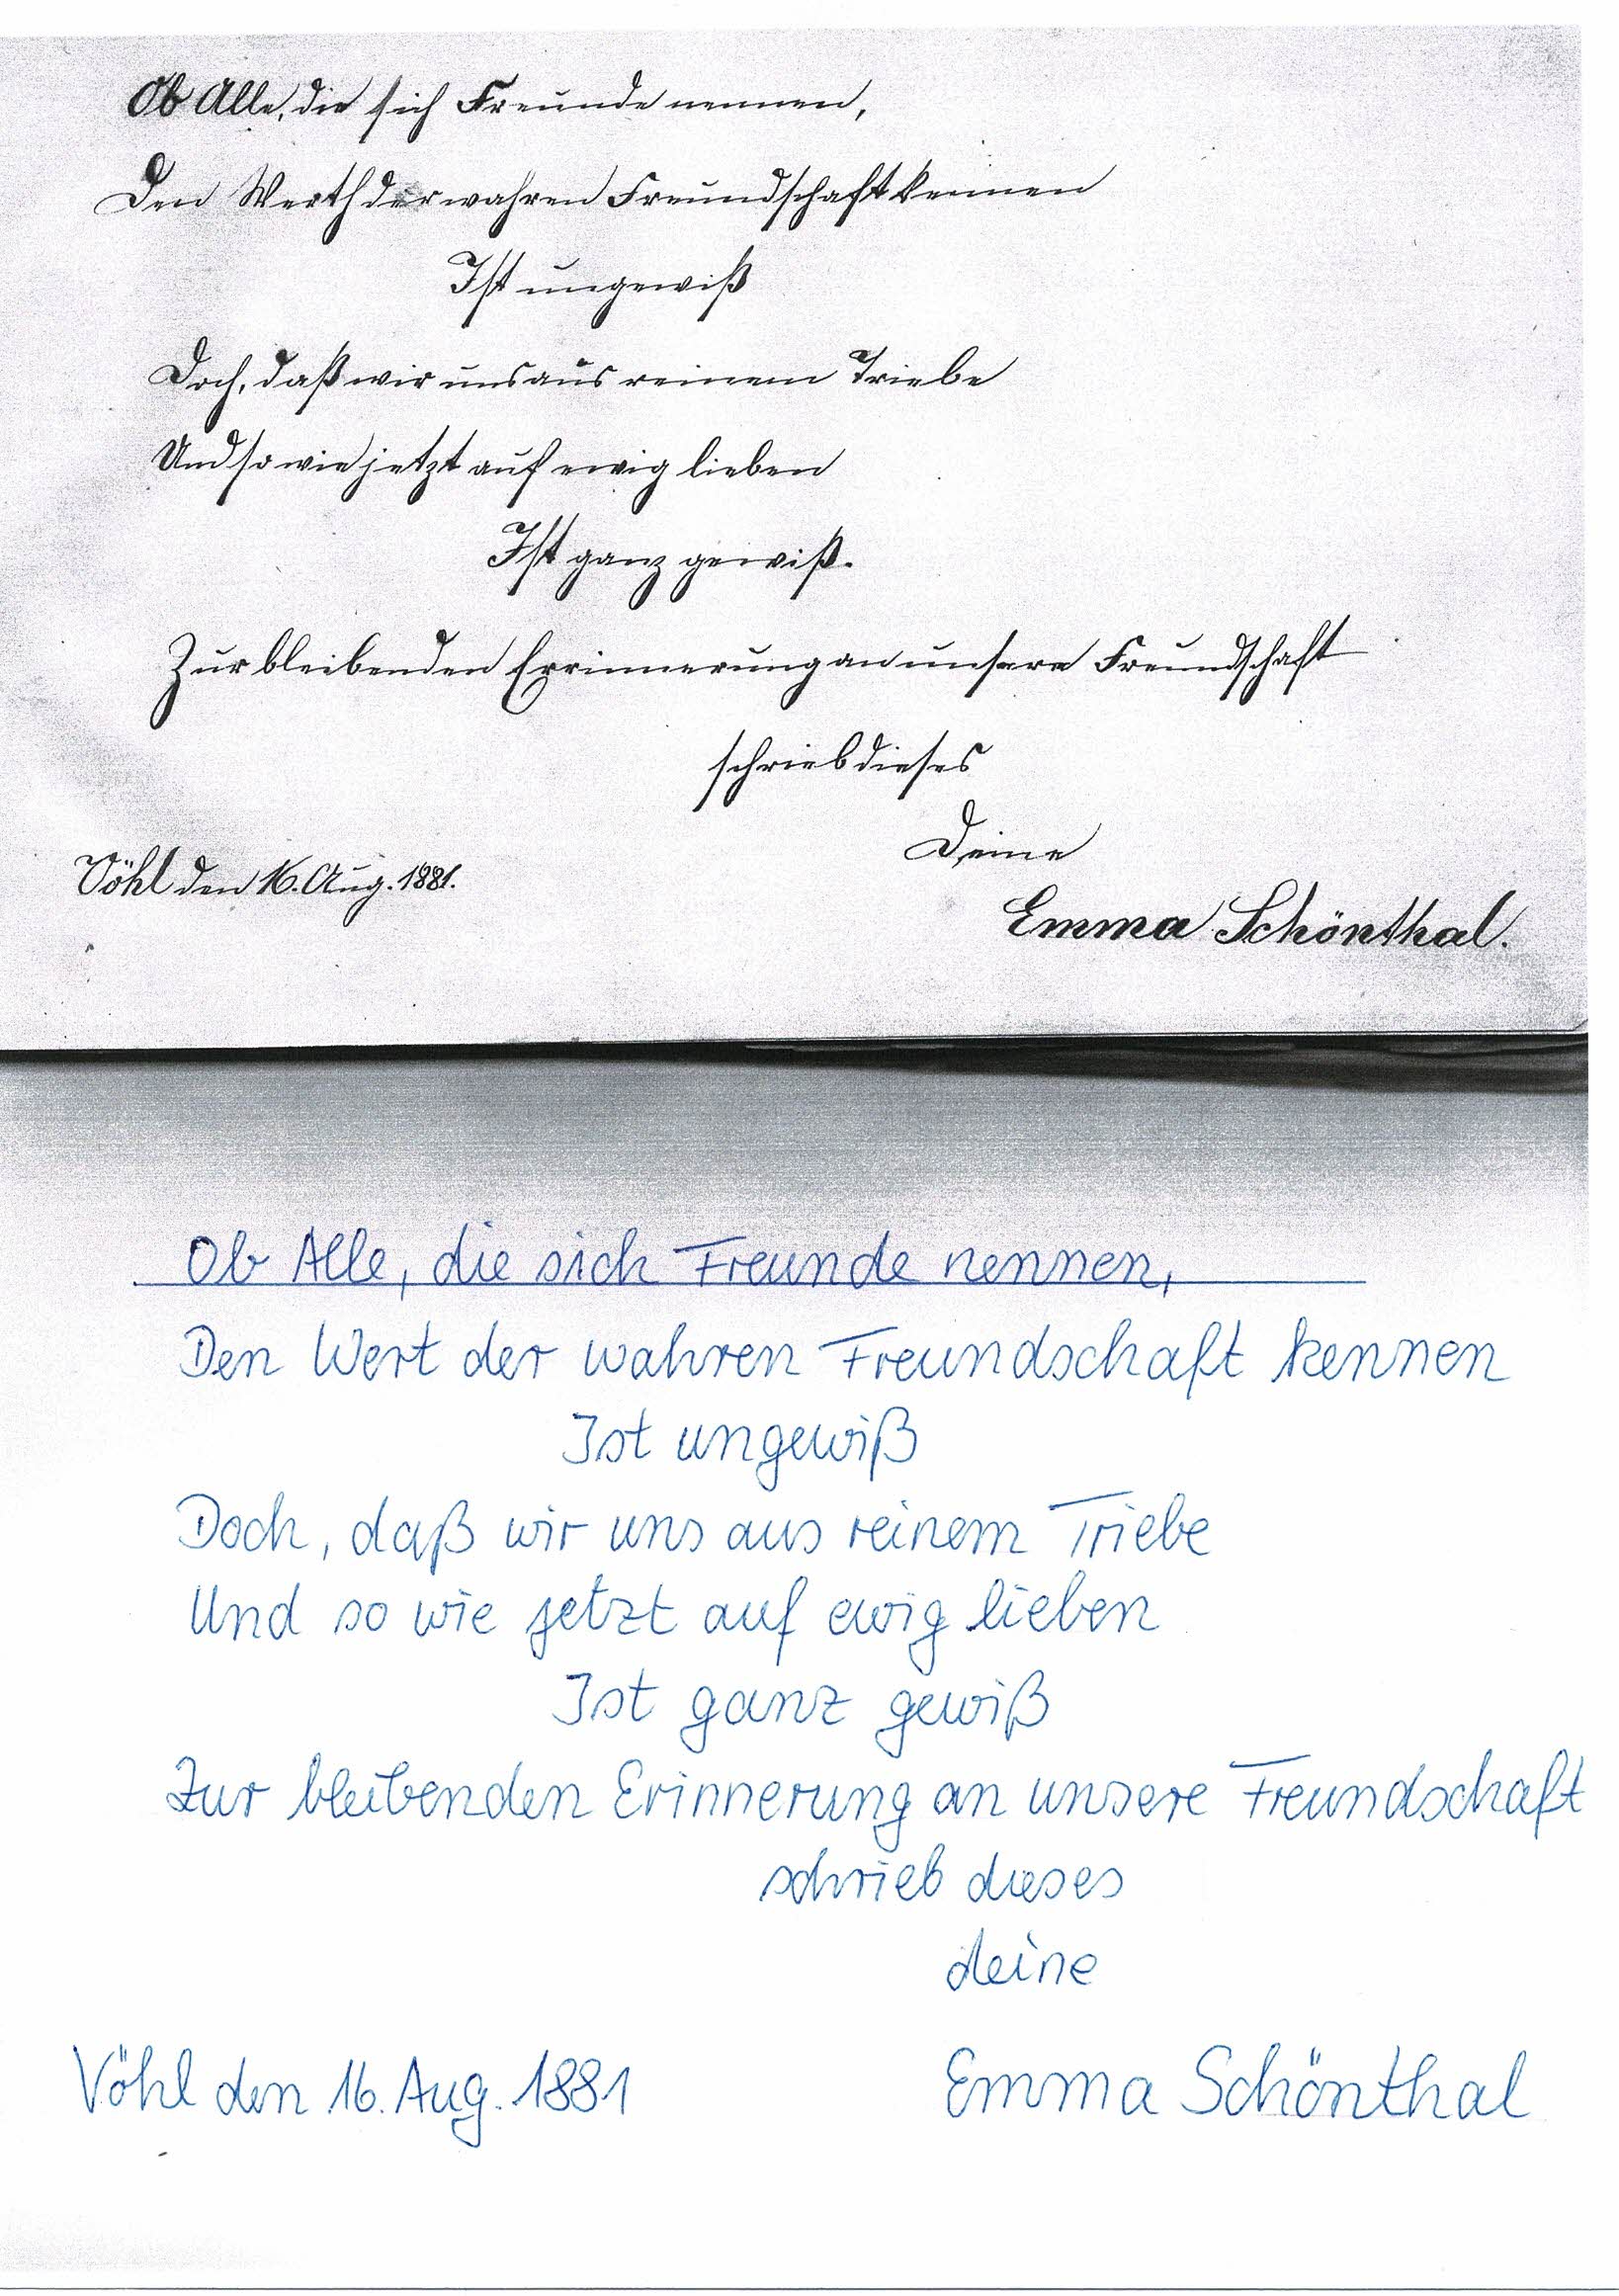 Ob Alle, die sich Freunde nennen,
Den Werth der wahren Freundschaft kennen
Ist ungewiß
Doch, daß wir uns aus reinem Triebe
Und so wie jetzt auf ewig lieben
Ist ganz gewiß.
Zur bleibenden Errinnerung an unsere Freundschaft
schrieb dieses
Deine
Vöhl den 16. Aug. 1881.
Emma Schönthal.
Ob Alle, die sich Freunde nennen,
Den Wert der wahren Freundschaft kennen
Ist ungewiß
Doch, daß wir uns aus reinem Triebe
Und so wie jetzt auf ewig lieben
Ist ganz gewiß
Zur bleibenden Erinnerung an unsere Freundschaft
schrieb dieses
deine
Vöhl den 16. Aug. 1881
Emma Schönthal